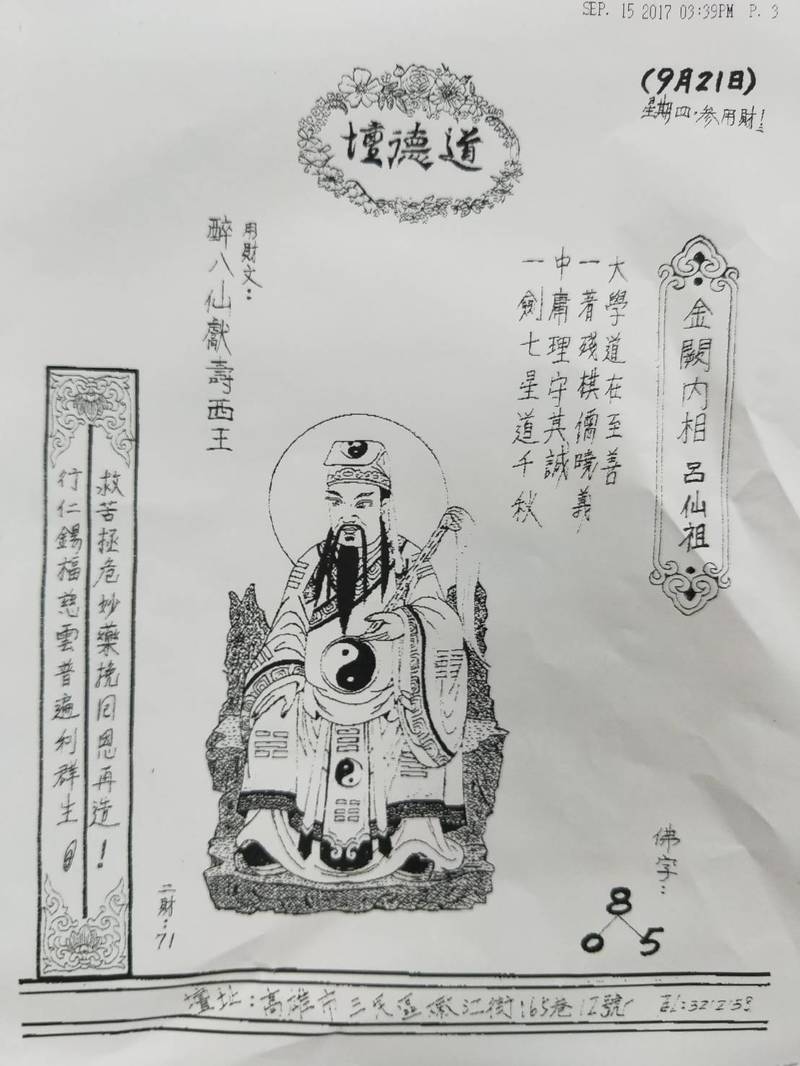 SEP. 15 2017 03:39PM P. 3
(9月21日)
星期四.參用財!
道德壇
金闕內相 呂仙祖
大學道在至善
一著殘棋儒曉義
中庸理守其誠
一劍七星道千秋
用財文:
醉八仙獻壽西王
救苦拯危妙藥挽回恩再造!
行仁錫福慈雲普遍利群生
二財:71
佛字:
8
0 5
壇址:高雄市三民區 江街165巷12號 TEL:3212158